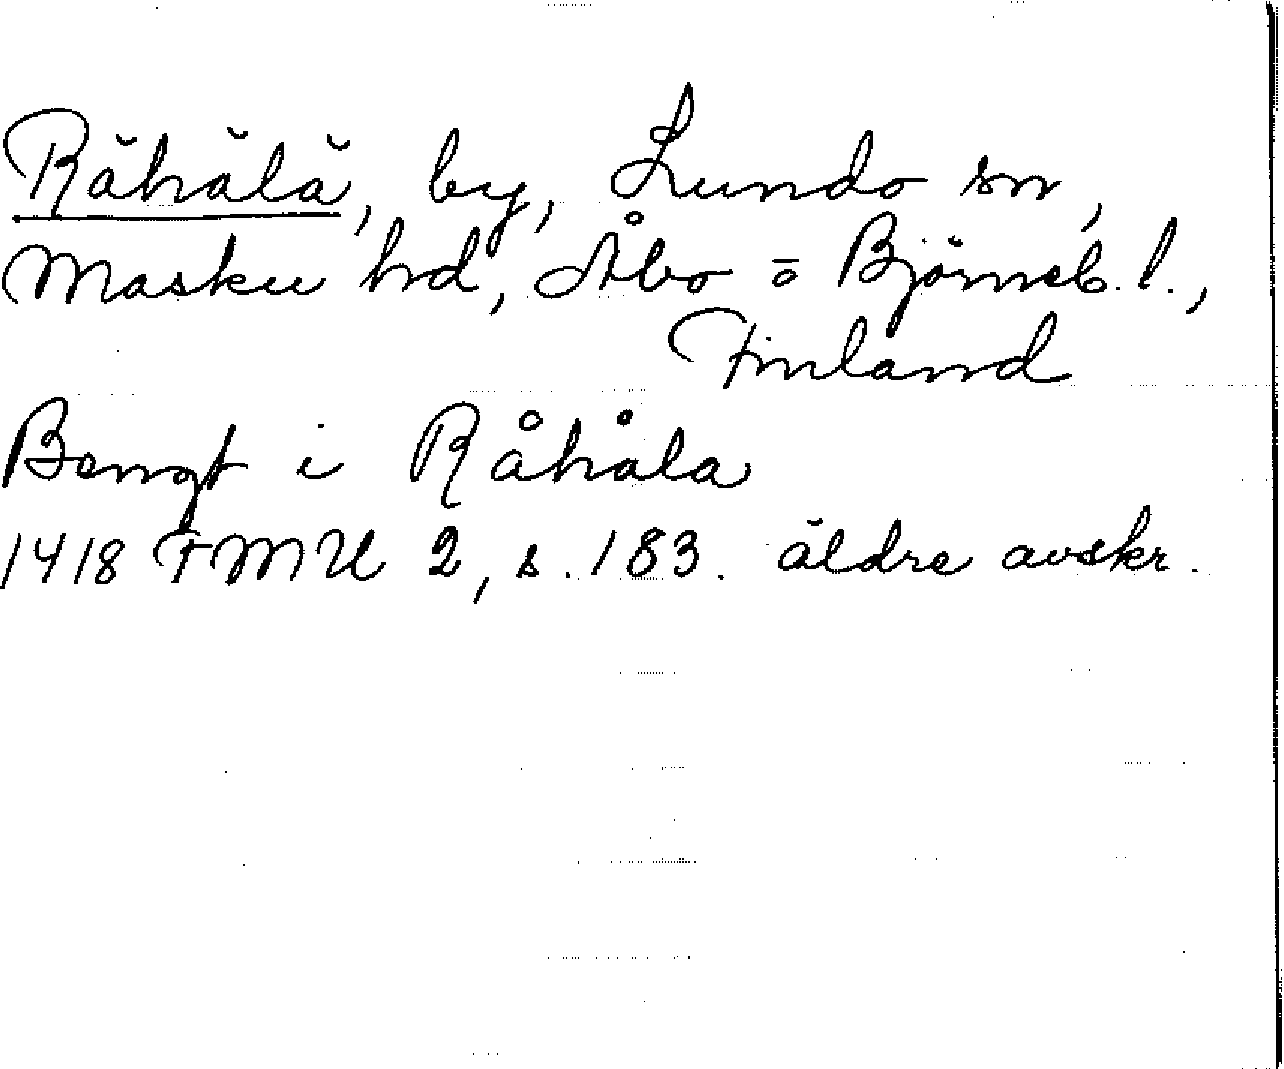 Rähälä, by, Lundo sn,
Masku hd, Åbo o Björneb. l.,
Finland
Bengt i Råhåla
1418 FMU 2, s. 183. äldre avskr.